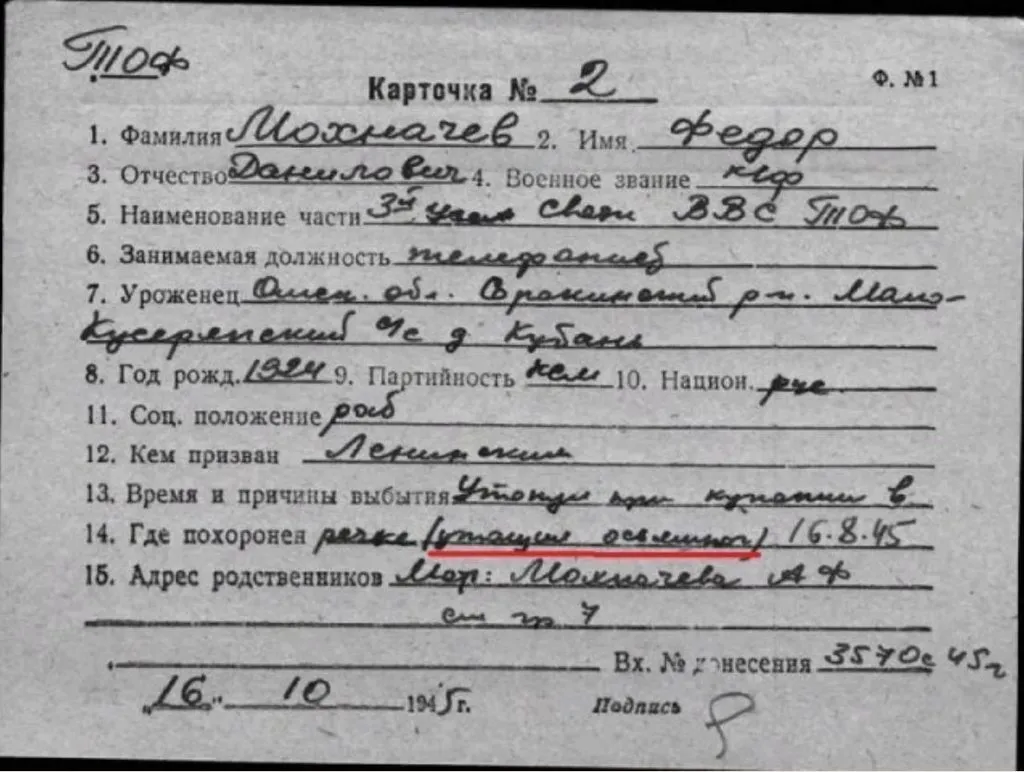 ТОФ
Карточка № 2 Ф. №1
1. Фамилия Мохначев 2. Имя Федор
3. Отчество Данилович 4. Военное звание кнф
5. Наименование части 3й узел связи ВВС ТОФ
6. Занимаемая должность телефонист
7. Уроженец Омск. обл. Сорокинский р-н. Мало-
Кусеряпский с/с д Кубань
8. Год рожд. 1924 9. Партийность ксм 10. Национ. рус
11. Соц. положение раб
12. Кем призван Ленинским
13. Время и причины выбытия Утонул при купании в
14. Где похоронен речке (утащил осьминог) 16.8.45
15. Адрес родственников Мать: Мохначева А Ф
см гр 7
Вх. № донесения 3570с 45г
„16“ 10 1945г. Подпись